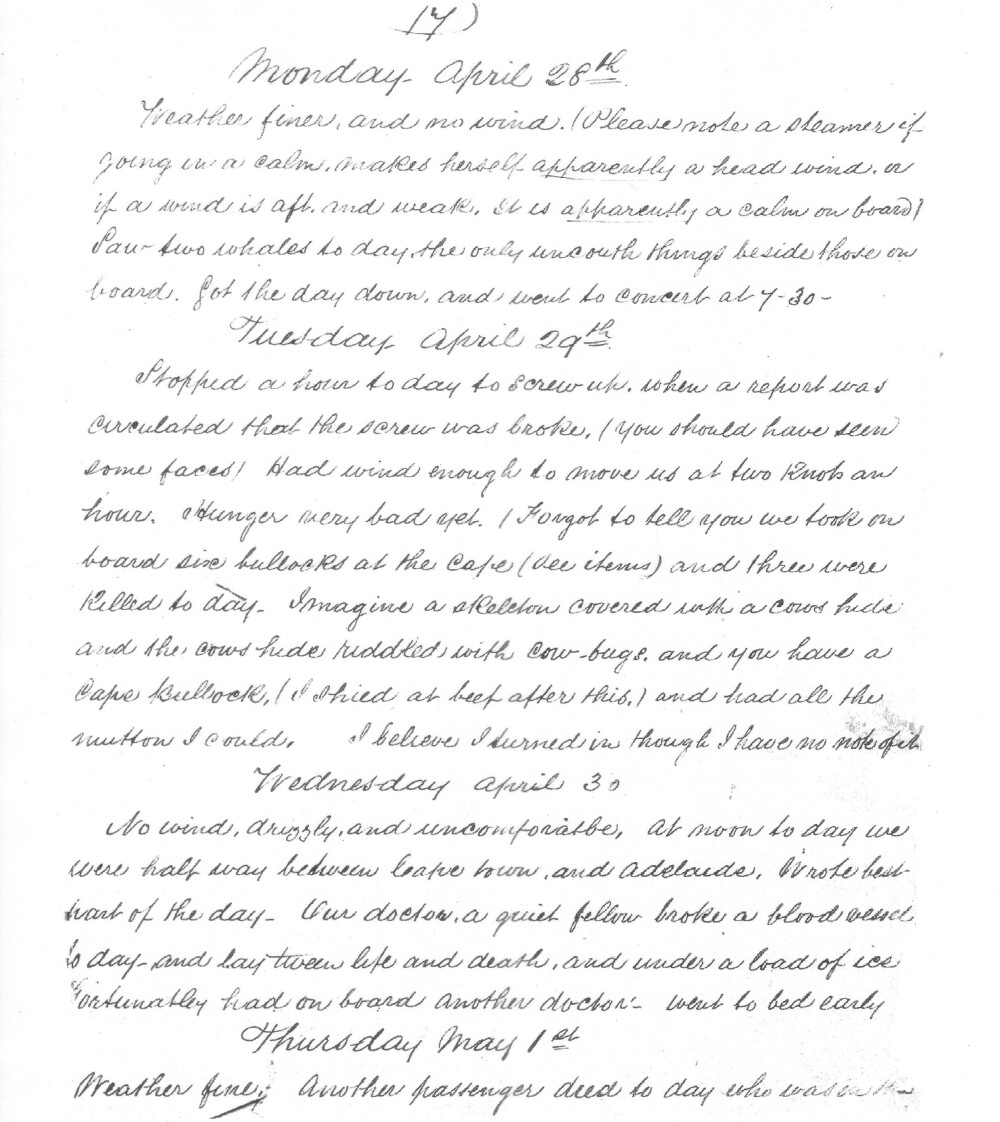 17)
Monday April 28th
Weather finer, and no wind. (Please note a steamer if
going in a calm, makes herself apparently a head wind, or
if a wind is aft. and weak, it is apparently a calm on board)
Saw two whales to day, the only uncouth things beside those on
board. Got the day down, and went to concert at 7-30-
Tuesday April 29th
Stopped a hour to day to screw up, when a report was
circulated that the screw was broke, (you should have seen
some faces) Had wind enough to move us at two Knots an
hour. Hunger very bad yet. (Forgot to tell you we took on
board six bullocks at the Cape (see items) and three were
killed to day- Imagine a skeleton covered with a cows hide
and the cows hide riddled with cow-bugs, and you have a
Cape Bullock, (I shied at beef after this,) and had all the
mutton I could. I believe I turned in though I have no note of it
Wednesday April 30
No wind, drizzly, and uncomforatbe, at noon to day we
were half way between Cape town, and Adelaide, Wrote best
part of the day- Our doctor, a quiet fellow broke a blood vessel
to day- and lay tween life and death, and under a load of ice
Fortunatley had on board another doctor:- went to bed early
Thursday May 1st
Weather fine; Another passenger died to day who was in